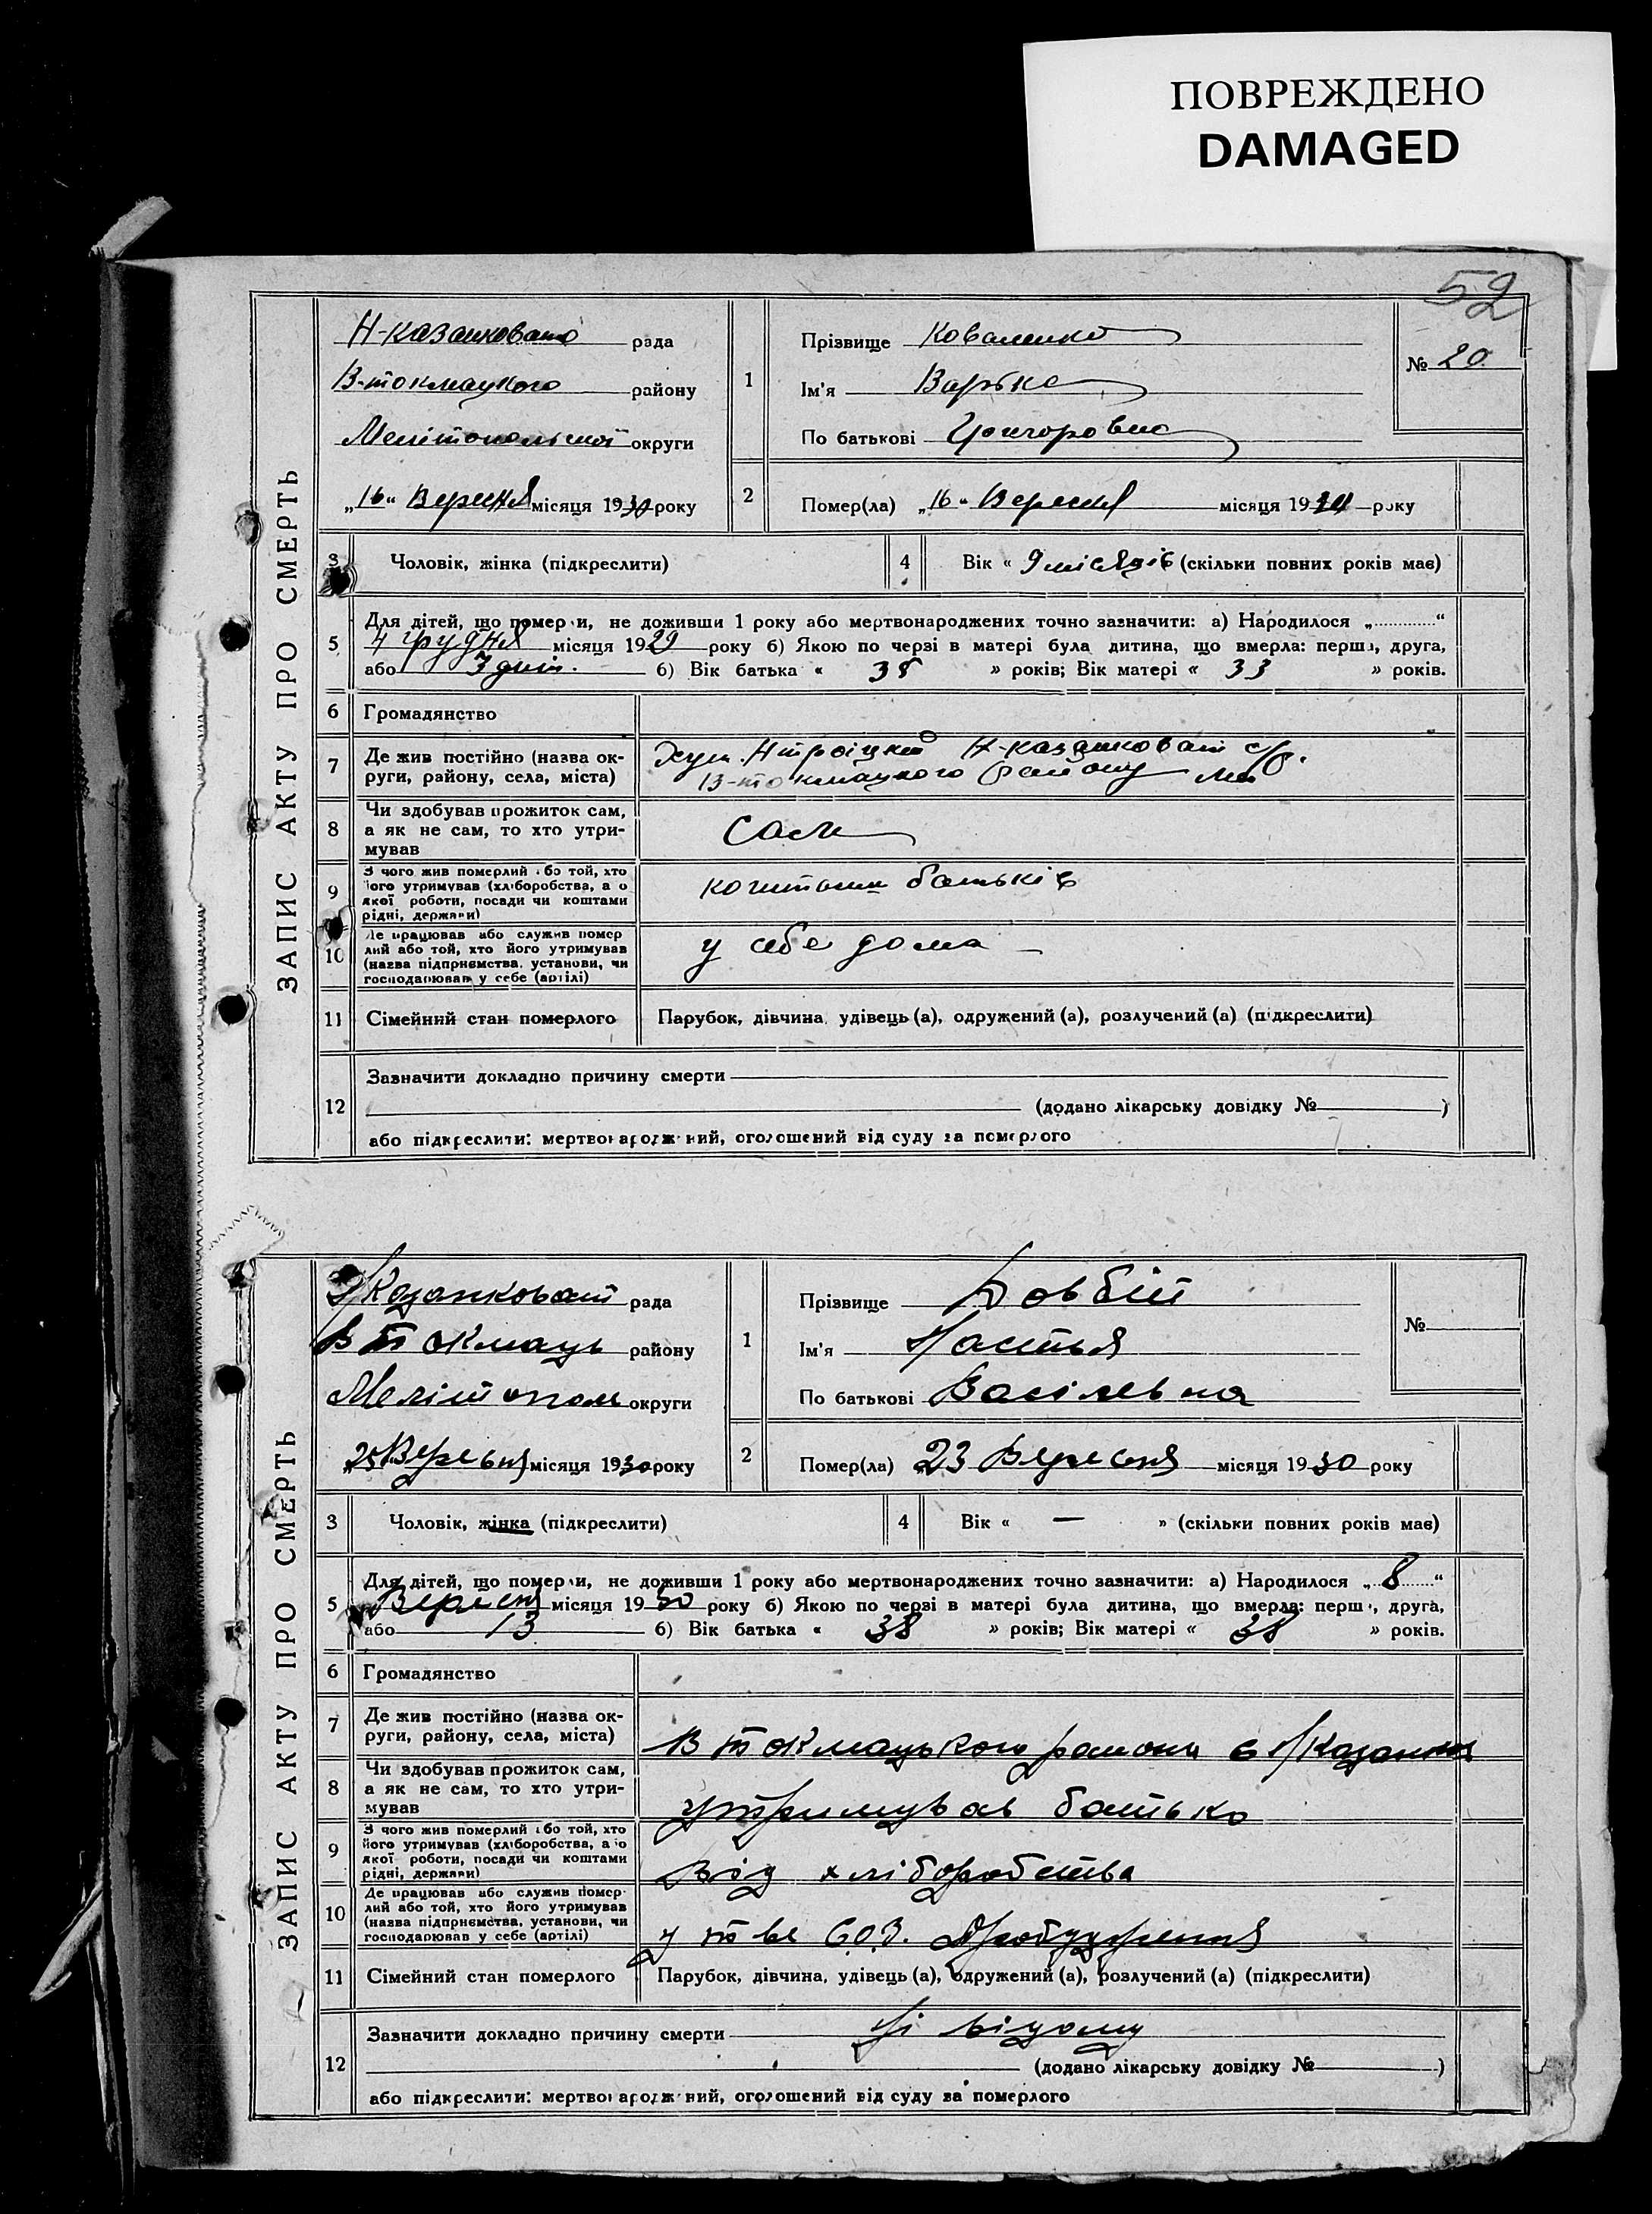 ПОВРЕЖДЕНО
DAMAGED
52
ЗАПИС АКТУ ПРО СМЕРТЬ
Н-казанковато рада
В-токмацкого району
Мелітопольської округи
„16“ Вересня місяця 1930 року
1
Прізвище Коваленко
Ім'я Варька
По батькові Григоровна
№ 20.
2
Помер(ла) „16“ Вересня місяця 19 року
3
Чоловік, жінка (підкреслити)
4
Вік « 9 місяців (скільки повних років має)
5
Для дітей, що померли, не доживши 1 року або мертвонароджених точно зазначити: а) Народилося „ “
4 грудня місяця 1929 року б) Якою по черзі в матері була дитина, що вмерла: перша, друга,
або 3 б) Вік батька « 38 » років; Вік матері « 33 » років.
6
Громадянство
7
Де жив постійно (назва ок-
руги, району, села, міста)
Хут. Н-казанковат с/р.
В-токмацкого району
8
Чи здобував прожиток сам,
а як не сам, то хто утри-
мував
9
З чого жив померлий або той, хто
його утримував (хліборобства, або
якої роботи, посади чи коштами
рідні, держави)
коштами батьків
10
Де працював або служив помер
лий або той, хто його утримував
(назва підприємства, установи, чи
господарював у себе (артілі)
у себе дома
11
Сімейний стан померлого
Парубок, дівчина, удівець (а), одружений (а), розлучений (а) (підкреслити)
12
Зазначити докладно причину смерти
(додано лікарську довідку № )
або підкреслити: мертвонароджений, оголошений від суду за померлого
ЗАПИС АКТУ ПРО СМЕРТЬ
Н/Казанковат рада
В Токмаць району
Мелітопол округи
„25 Вересня місяця 1930 року
1
Прізвище Довбіш
Ім'я Настья
По батькові Васілевна
№
2
Помер(ла) „23 Вересня місяця 1930 року
3
Чоловік, жінка (підкреслити)
4
Вік « — » (скільки повних років має)
5
Для дітей, що померли, не доживши 1 року або мертвонароджених точно зазначити: а) Народилося „ 8 “
Вересня місяця 1930 року б) Якою по черзі в матері була дитина, що вмерла: перша, друга,
або 13 б) Вік батька « 38 » років; Вік матері « 38 » років.
6
Громадянство
7
Де жив постійно (назва ок-
руги, району, села, міста)
В токмацького района с Н/Казанки
8
Чи здобував прожиток сам,
а як не сам, то хто утри-
мував
утримував батько
9
З чого жив померлий або той, хто
його утримував (хліборобства, або
якої роботи, посади чи коштами
рідні, держави)
Від хліборобства
10
Де працював або служив помер-
лий або той, хто його утримував
(назва підприємства, установи, чи
господарював у себе (артілі)
у т ве С.О.З.
11
Сімейний стан померлого
Парубок, дівчина, удівець (а), одружений (а), розлучений (а) (підкреслити)
12
Зазначити докладно причину смерти Ні відому
(додано лікарську довідку № )
або підкреслити: мертвонароджений, оголошений від суду за померлого